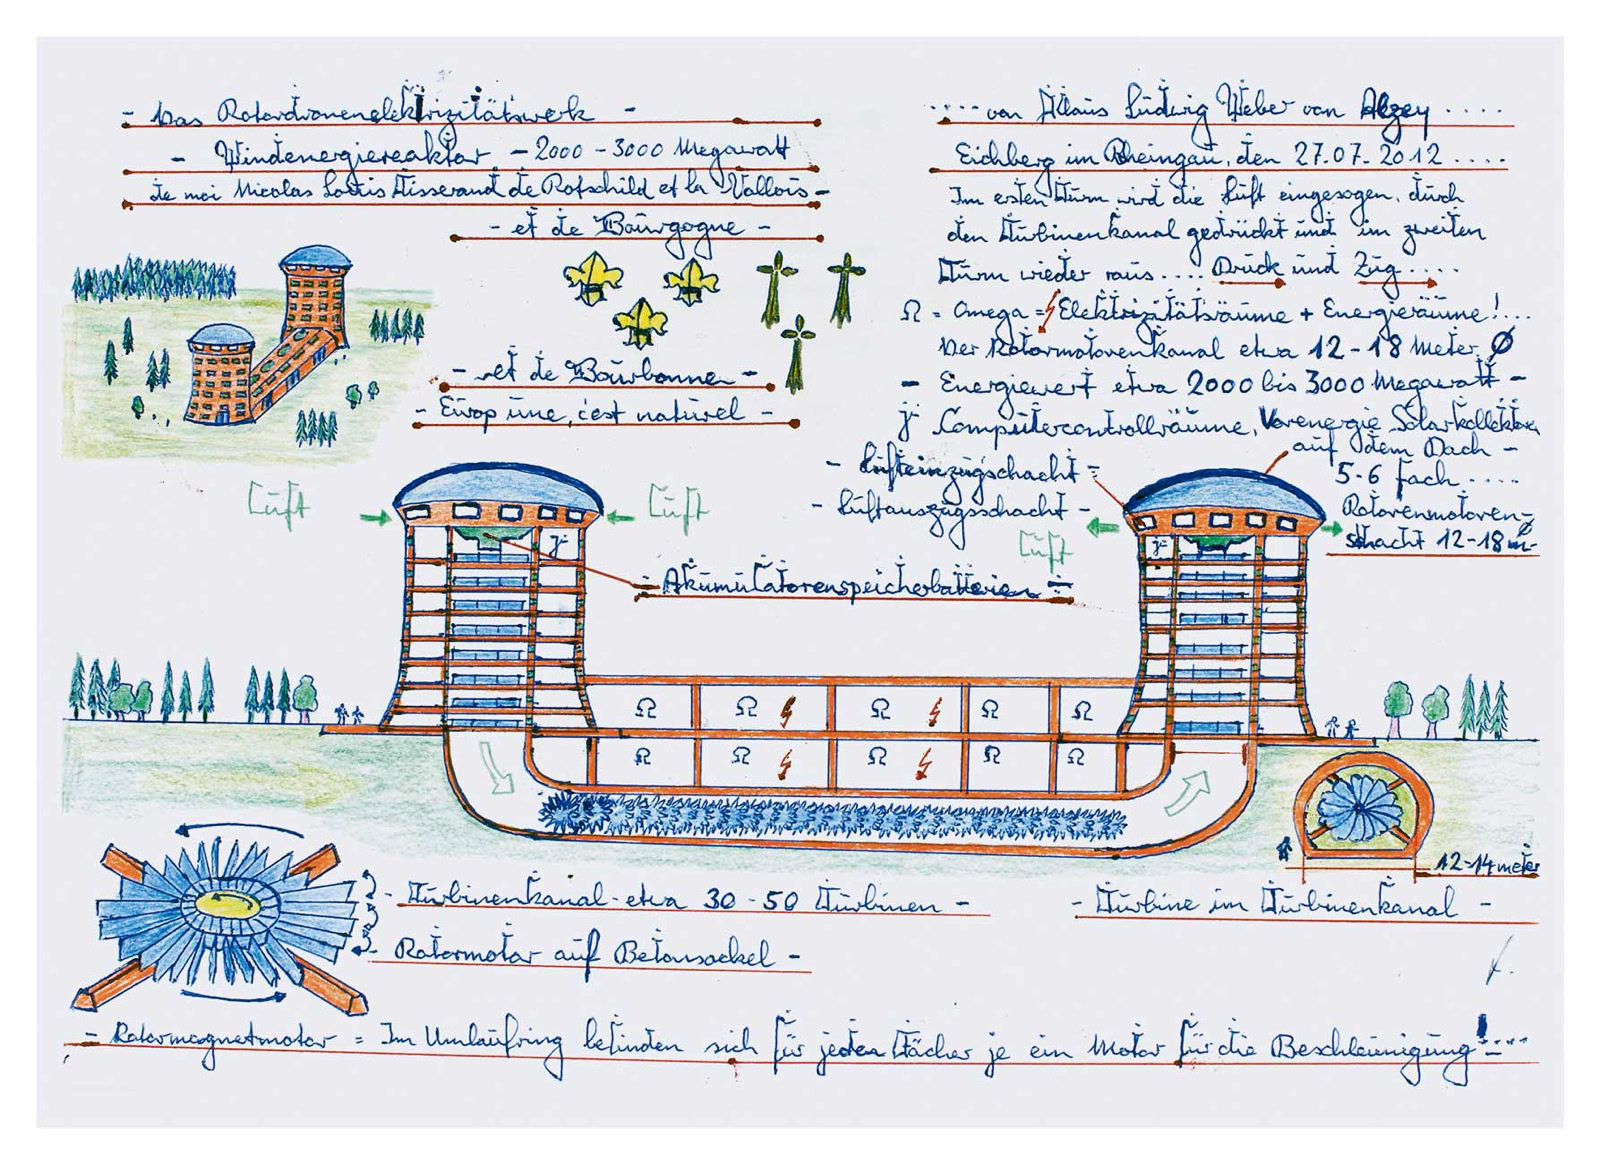 - Das Rotordronenelektrizitätswerk -
- Windenergiereaktor - 2000 - 3000 Megawatt
de moi Nicolas Louis Tisserand de Rotschild et la Vallois -
- et de Bourgogne -
- et de Bourbonne -
- Europ une, c'est naturel -
.... von Klaus Ludwig Weber von Alzey ....
Eichberg im Rheingau, den 27.07.2012 ....
Im ersten Turm wird die Luft eingesogen, durch
den Turbinenkanal gedrückt und im zweiten
Turm wieder raus .... Druck und Zug ....
Ω = Omega = Elektrizitätsräume + Energieräume! ...
Der Rotormotorenkanal etwa 12-18 Meter Ø
- Energiewert etwa 2000 bis 3000 Megawatt -
Computercontrollräume, Vorenergie Solarkollektoren
auf dem Dach -
5-6 fach ....
- Lufteinzugschacht -
- Luftauszugsschacht -
Rotorenmotoren-
schacht 12-18 m Ø
Luft
Luft
Luft
- Akumulatorenspeicherbatterien -
Ω Ω Ω Ω Ω
Ω Ω Ω Ω Ω
12-14 meter
- Turbinenkanal - etwa 30 - 50 Turbinen -
- Turbine im Turbinenkanal -
- Rotormotor auf Betonsockel -
- Rotormagnetmotor = Im Umlaufring befinden sich für jeden Fächer je ein Motor für die Beschleunigung!